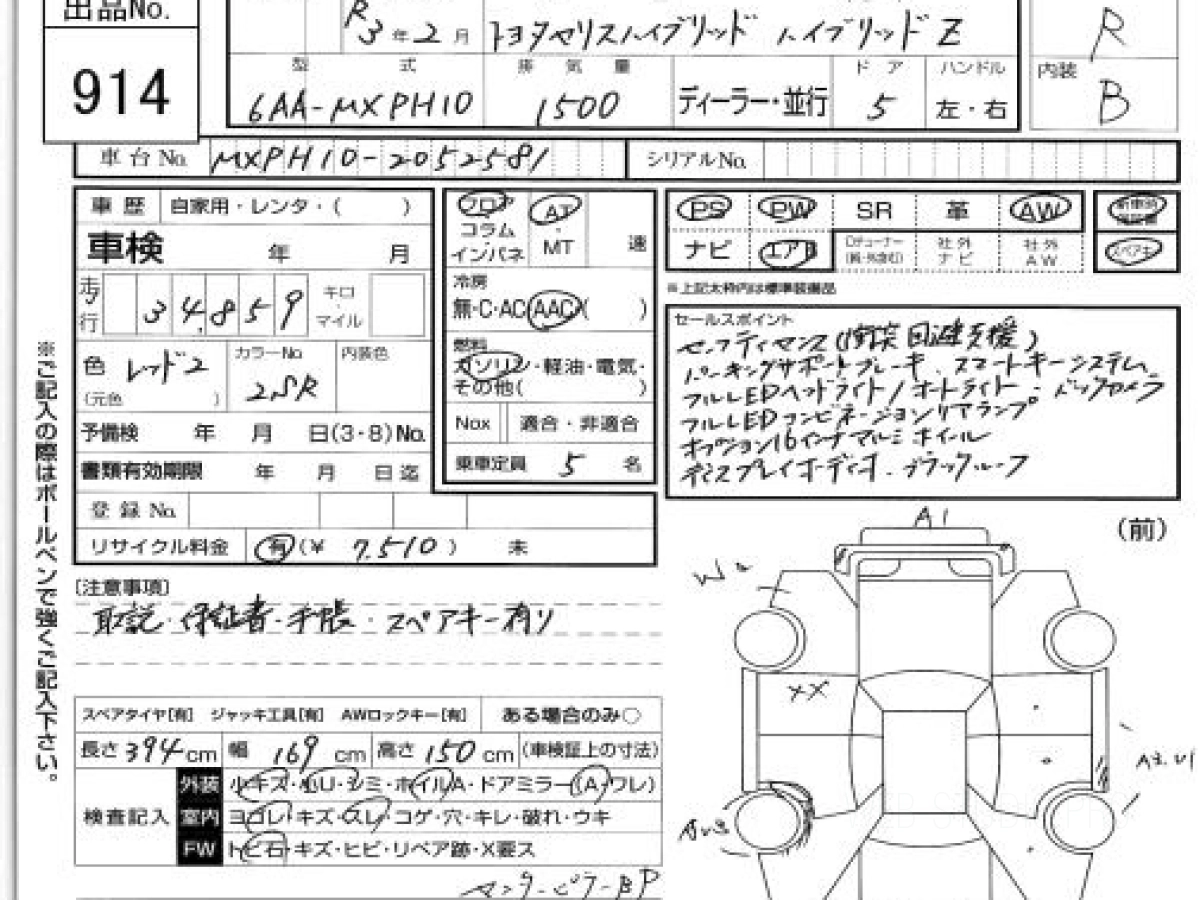 出品No.
914
R3年2月 トヨタヤリスハイブリッド ハイブリッドZ
R
型式 排気量 ドア ハンドル 内装
6AA-MXPH10 1500 ディーラー・並行 5 左・右 B
車台No. MXPH10-2052581 シリアルNo.
車歴 自家用・レンタ・( )
車検 年 月
走行 34,859 キロ・マイル
色 レッド2 (元色 )
カラーNo 2SR
内装色
予備検 年 月 日(3・8)No.
書類有効期限 年 月 日迄
登録No.
リサイクル料金 有(¥ 7,510) 未
フロア
コラム
インパネ
AT・MT 速
冷房
無・C・AC・AAC( )
燃料
ガソリン・軽油・電気・
その他( )
Nox 適合・非適合
乗車定員 5 名
PS PW SR 革 AW 新車時保証書
ナビ エアB 社外ナビ 社外AW スペアキー
※上記太枠内は標準装備品
セールスポイント
セーフティセンス(衝突回避支援)
パーキングサポートブレーキ、スマートキーシステム
フルLEDヘッドライト/オートライト・バックカメラ
フルLEDコンビネーションリアランプ
オプション16インチアルミホイール
ディスプレイオーディオ・ブラックルーフ
※ご記入の際はボールペンで強くご記入下さい。
[注意事項]
取説・保証書・手帳・スペアキー有り
(前)
A1
XX
スペアタイヤ[有] ジャッキ工具[有] AWロックキー[有] ある場合のみ○
長さ394cm 幅169cm 高さ150cm (車検証上の寸法)
検査記入
外装 小キズ・小U・シミ・ホイルA・ドアミラー(A・ワレ)
室内 ヨゴレ・キズ・スレ・コゲ・穴・キレ・破れ・ウキ
FW トビ石・キズ・ヒビ・リペア跡・X要ス